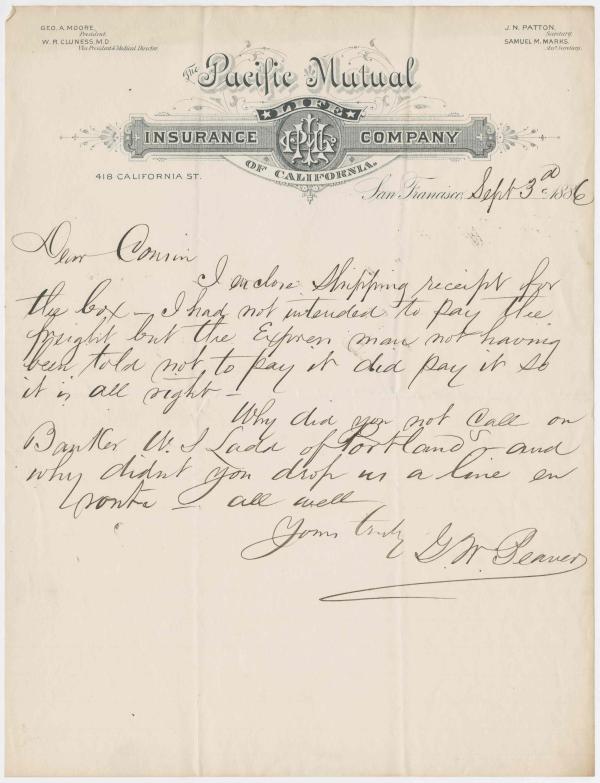 GEO. A. MOORE,
President.
W. R. CLUNESS, M.D.
Vice President & Medical Director.
J. N. PATTON,
Secretary.
SAMUEL M. MARKS,
Ass't Secretary.
The Pacific Mutual
LIFE
INSURANCE COMPANY
OF CALIFORNIA.
418 CALIFORNIA ST.
San Francisco, Sept 3d 1886
Dear Cousin
I enclose shipping receipt for
the box – I had not intended to pay the
freight but the Express man not having
been told not to pay it did pay it so
it is all right –
Why did you not call on
Banker W. S Ladd of Portland – and
why didnt you drop us a line en
route – all well
Yours truly
G. W.